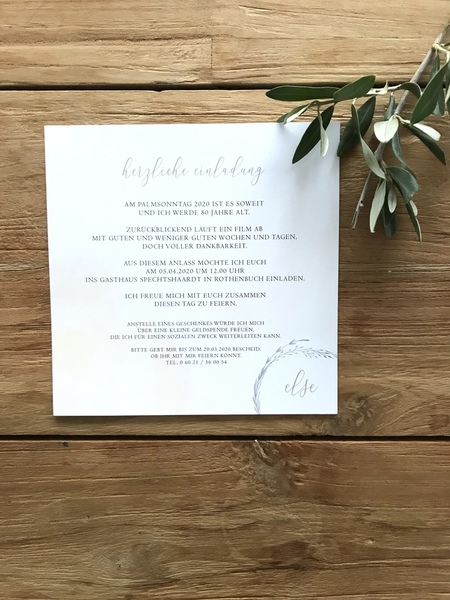 herzliche einladung
AM PALMSONNTAG 2020 IST ES SOWEIT
UND ICH WERDE 80 JAHRE ALT.
ZURÜCKBLICKEND LÄUFT EIN FILM AB
MIT GUTEN UND WENIGER GUTEN WOCHEN UND TAGEN,
DOCH VOLLER DANKBARKEIT.
AUS DIESEM ANLASS MÖCHTE ICH EUCH
AM 05.04.2020 UM 12.00 UHR
INS GASTHAUS SPECHTSHAARDT IN ROTHENBUCH EINLADEN.
ICH FREUE MICH MIT EUCH ZUSAMMEN
DIESEN TAG ZU FEIERN.
ANSTELLE EINES GESCHENKES WÜRDE ICH MICH
ÜBER EINE KLEINE GELDSPENDE FREUEN,
DIE ICH FÜR EINEN SOZIALEN ZWECK WEITERLEITEN KANN.
BITTE GEBT MIR BIS ZUM 20.03.2020 BESCHEID,
OB IHR MIT MIR FEIERN KÖNNT.
TEL. 0 60 21 / 36 00 34
else